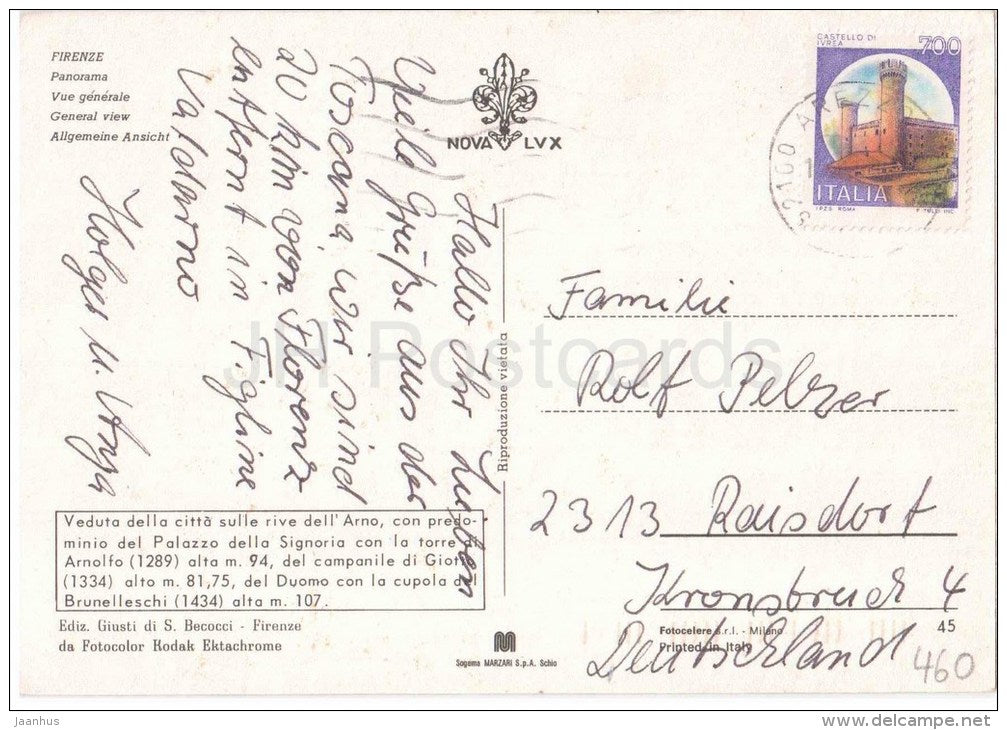 FIRENZE
Panorama
Vue générale
General view
Allgemeine Ansicht
NOVA LVX
CASTELLO DI
IVREA
700
ITALIA
I.P.Z.S. ROMA
52100
Hallo Ihr Lieben
Viele Grüße aus der
Toscana wir sind
20 km von Florenz
entfernt in Figline
Valdarno
Holger u.
Riproduzione vietata
Familie
Rolf Pelzer
2313 Raisdorf
Kronsbruck 4
Deutschland
460
Veduta della città sulle rive dell'Arno, con predo-
minio del Palazzo della Signoria con la torre
Arnolfo (1289) alta m. 94, del campanile di Giotto
(1334) alto m. 81,75, del Duomo con la cupola del
Brunelleschi (1434) alta m. 107.
Ediz. Giusti di S. Becocci - Firenze
da Fotocolor Kodak Ektachrome
Sogema MARZARI S.p.A. Schio
Fotocelere s.r.l. - Milano
Printed in Italy
45
JH Postcards
jaanhus
www.delcampe.net